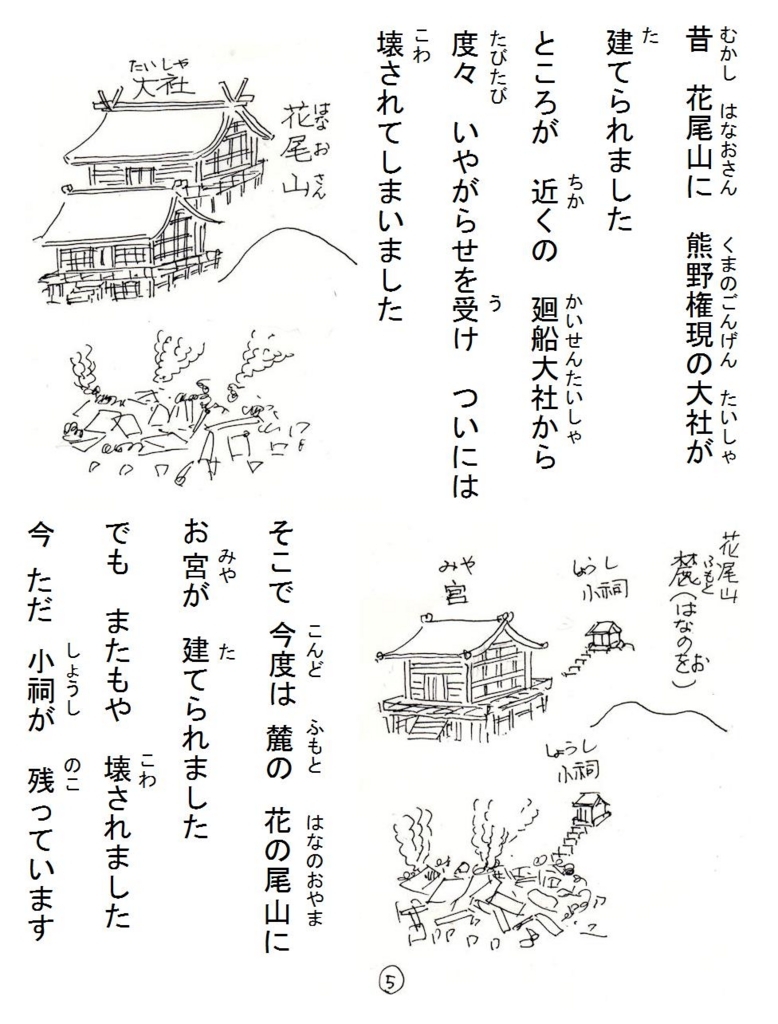 昔　花尾山に　熊野権現の大社が
むかし　はなおさん　くまのごんげん　たいしゃ
建てられました
た
ところが　近くの　廻船大社から
ちか　かいせんたいしゃ
度々　いやがらせを受け　ついには
たびたび　う
壊されてしまいました
こわ
たいしゃ
大社
花尾山
はなおさん
花尾山
麓(はなのを)
ふもと
お
しょうし
小祠
みや
宮
しょうし
小祠
そこで　今度は　麓の　花の尾山に
こんど　ふもと　はなのおやま
お宮が　建てられました
みや　た
でも　またもや　壊されました
こわ
今　ただ　小祠が　残っています
しょうし　のこ
5